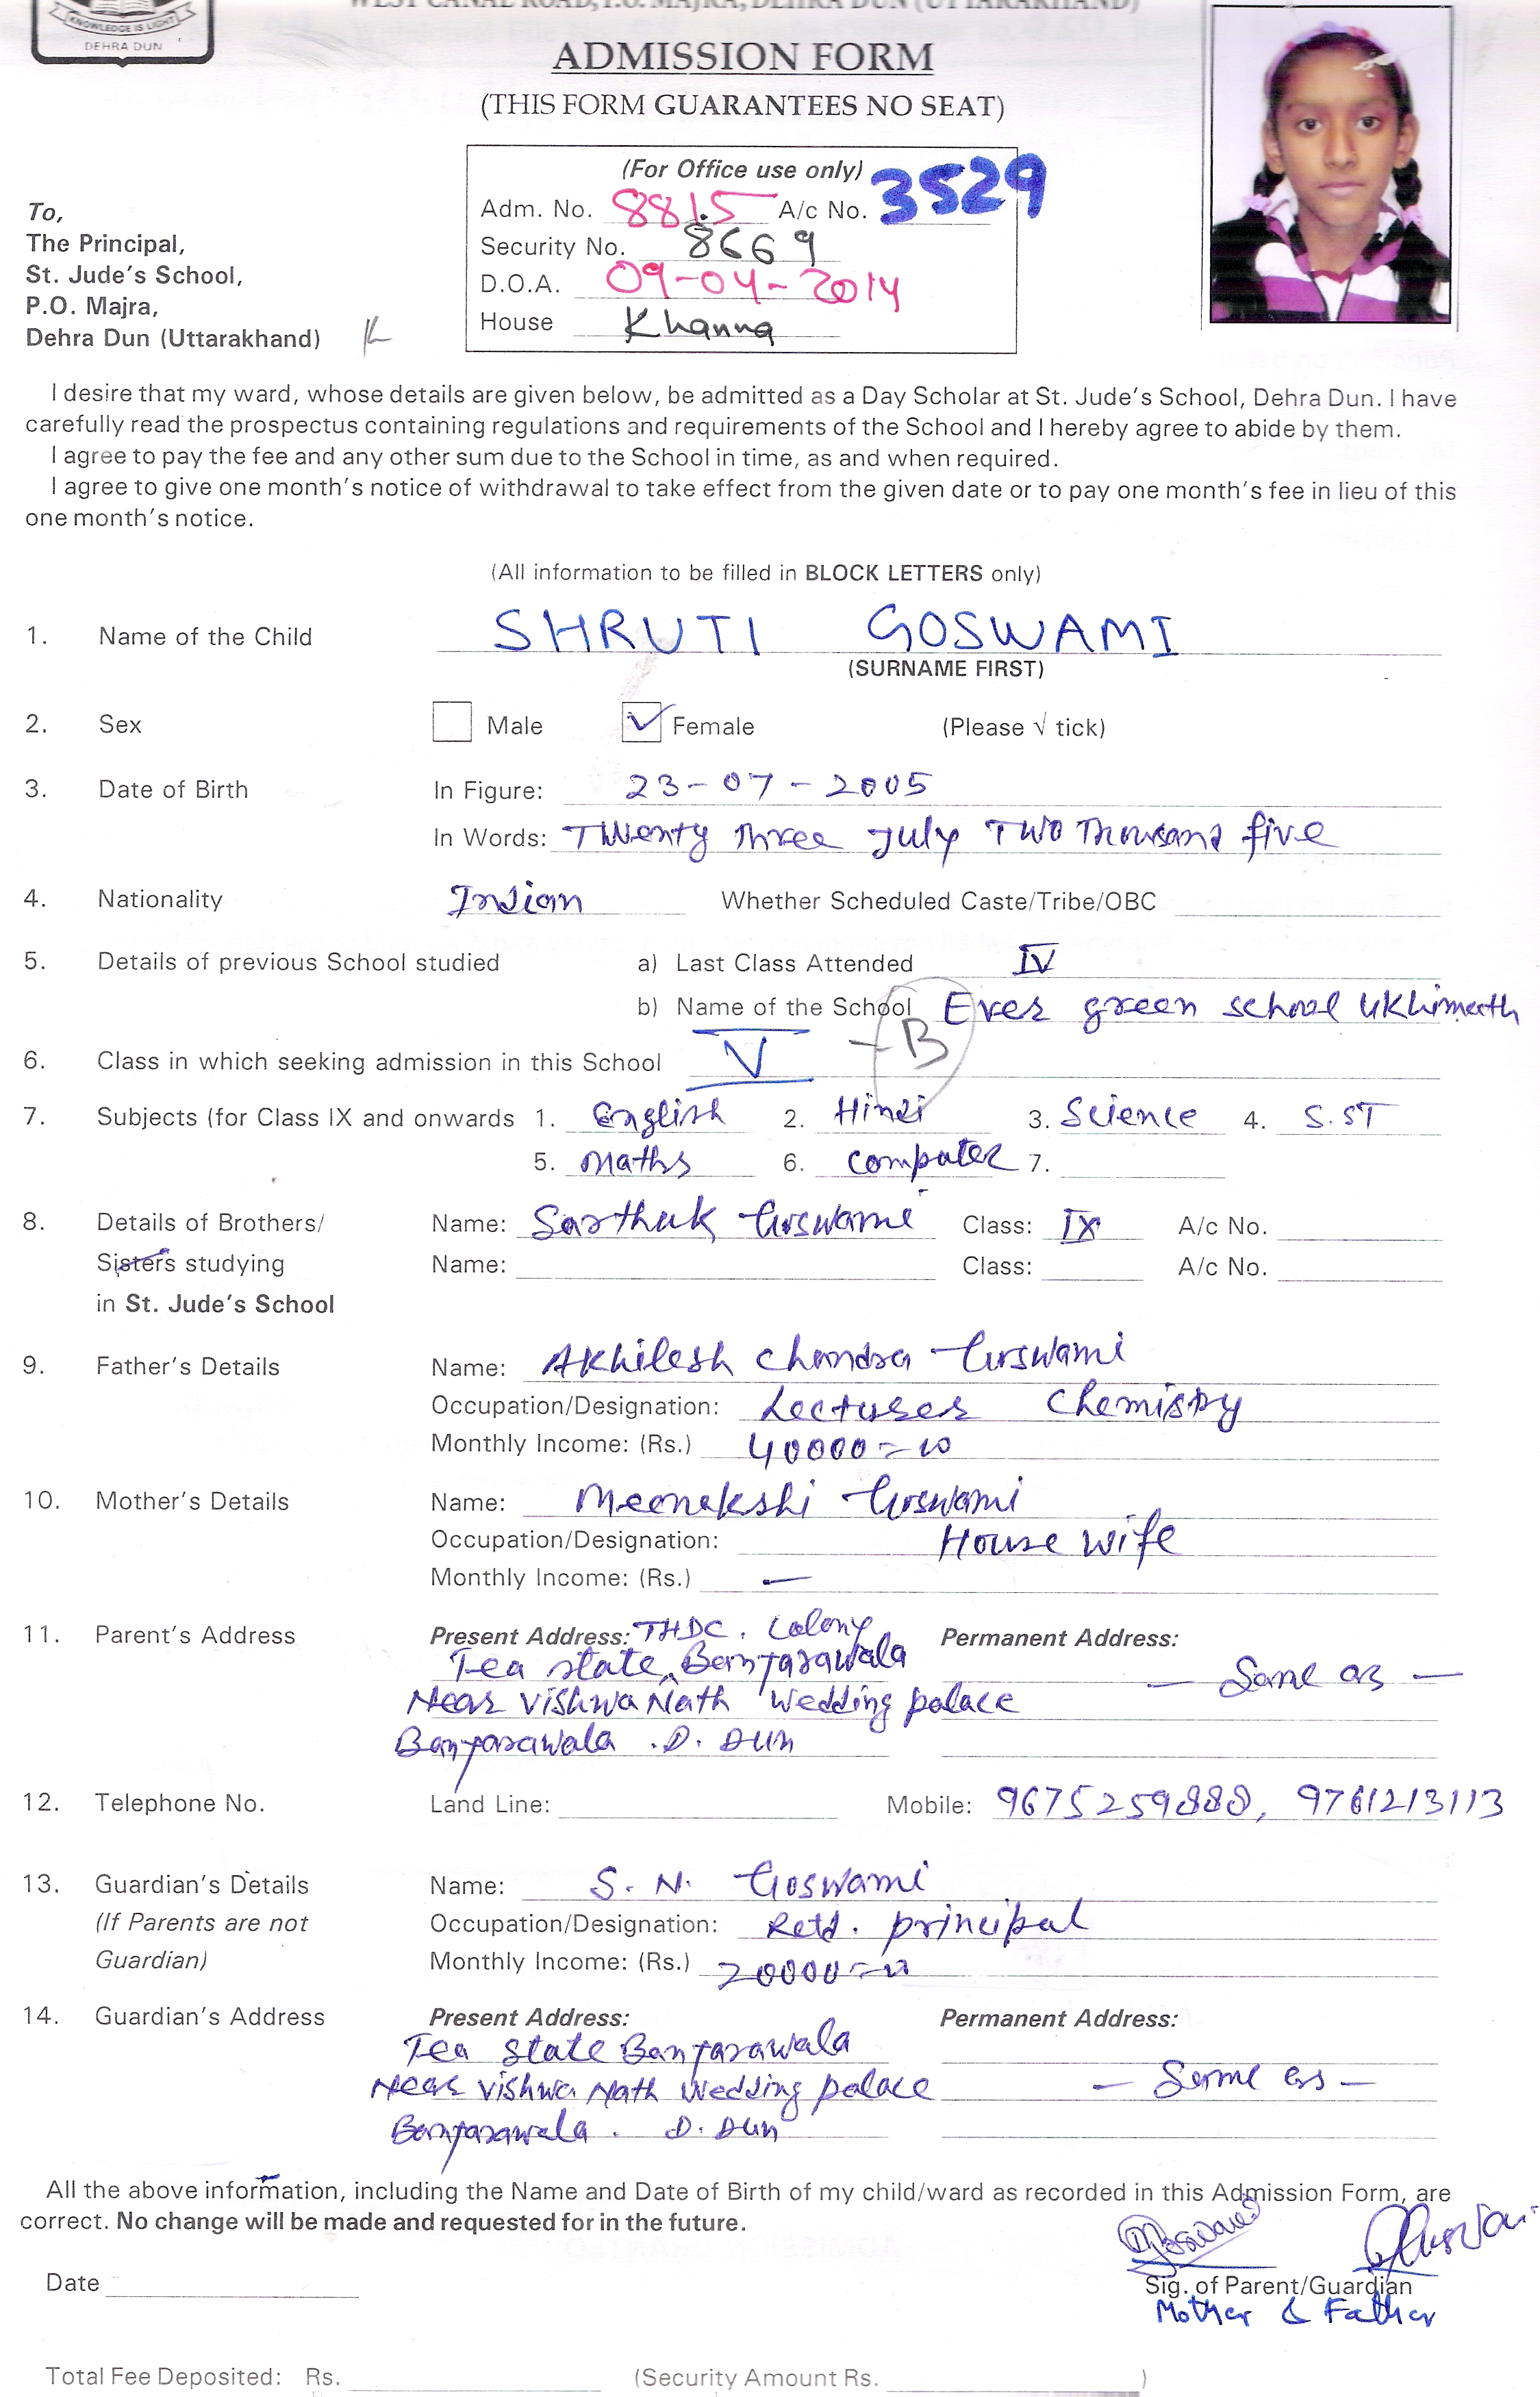 WEST CANAL ROAD, P.O. MAJRA, DEHRA DUN (UTTARAKHAND)
KNOWLEDGE IS LIGHT
DEHRA DUN
ADMISSION FORM
(THIS FORM GUARANTEES NO SEAT)
(For Office use only)
Adm. No. 8815 A/c No. 3529
Security No. 8669
D.O.A. 09-04-2014
House Khanna
To,
The Principal,
St. Jude's School,
P.O. Majra,
Dehra Dun (Uttarakhand)
I desire that my ward, whose details are given below, be admitted as a Day Scholar at St. Jude's School, Dehra Dun. I have
carefully read the prospectus containing regulations and requirements of the School and I hereby agree to abide by them.
I agree to pay the fee and any other sum due to the School in time, as and when required.
I agree to give one month's notice of withdrawal to take effect from the given date or to pay one month's fee in lieu of this
one month's notice.
(All information to be filled in BLOCK LETTERS only)
1. Name of the Child SHRUTI GOSWAMI
(SURNAME FIRST)
2. Sex Male ✓ Female (Please √ tick)
3. Date of Birth In Figure: 23-07-2005
In Words: Twenty Three July Two Thousand five
4. Nationality Indian Whether Scheduled Caste/Tribe/OBC
5. Details of previous School studied a) Last Class Attended IV
b) Name of the School Ever green school Ukhimath
6. Class in which seeking admission in this School V - B
7. Subjects (for Class IX and onwards 1. English 2. Hindi 3. Science 4. S.ST
5. Maths 6. Computer 7.
8. Details of Brothers/ Name: Sarthak Goswami Class: IX A/c No.
Sisters studying Name: Class: A/c No.
in St. Jude's School
9. Father's Details Name: Akhilesh Chandra Goswami
Occupation/Designation: Lecturer Chemistry
Monthly Income: (Rs.) 40000=00
10. Mother's Details Name: Meenakshi Goswami
Occupation/Designation: House wife
Monthly Income: (Rs.) —
11. Parent's Address Present Address: THDC. Colony Permanent Address:
Tea state, Banjarawala — Same as —
Near Vishwa Nath Wedding palace
Banjarawala . D. Dun
12. Telephone No. Land Line: Mobile: 9675259888, 9761213113
13. Guardian's Details Name: S. N. Goswami
(If Parents are not Occupation/Designation: Retd. principal
Guardian) Monthly Income: (Rs.) 20000=00
14. Guardian's Address Present Address: Permanent Address:
Tea state Banjarawala
Near Vishwa Nath Wedding palace — Same as —
Banjarawala . D. Dun
All the above information, including the Name and Date of Birth of my child/ward as recorded in this Admission Form, are
correct. No change will be made and requested for in the future.
Date Sig. of Parent/Guardian
Mother & Father
Total Fee Deposited: Rs. (Security Amount Rs. )